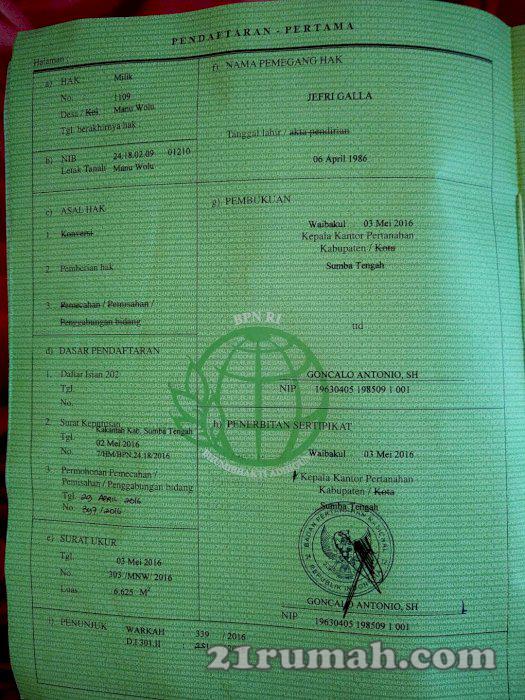 PENDAFTARAN - PERTAMA
Halaman :
a) HAK : Milik
No. 1109
Desa / Kel Manu Wolu
Tgl. berakhirnya hak :
b) NIB 24.18.02.09 01210
Letak Tanah Manu Wolu
c) ASAL HAK
1. Konversi
2. Pemberian hak
3. Pemecahan / Pemisahan /
Penggabungan bidang
d) DASAR PENDAFTARAN
1. Daftar Isian 202
Tgl.
No.
2. Surat Keputusan
Kakantah Kab. Sumba Tengah
Tgl. 02 Mei 2016
No. 7/HM/BPN.24.18/2016
3. Permohonan Pemecahan /
Pemisahan / Penggabungan bidang
Tgl. 29 APRIL 2016
No. 397 / 2016
e) SURAT UKUR
Tgl. 03 Mei 2016
No. 303 /MNW/ 2016
Luas 6.625 M2
f) NAMA PEMEGANG HAK
JEFRI GALLA
Tanggal lahir / akta pendirian
06 April 1986
g) PEMBUKUAN
Waibakul 03 Mei 2016
Kepala Kantor Pertanahan
Kabupaten / Kota
Sumba Tengah
ttd
GONCALO ANTONIO, SH
NIP 19630405 198509 1 001
h) PENERBITAN SERTIPIKAT
Waibakul 03 Mei 2016
Kepala Kantor Pertanahan
Kabupaten / Kota
Sumba Tengah
BADAN PERTANAHAN NASIONAL
REPUBLIK INDONESIA
GONCALO ANTONIO, SH
NIP 19630405 198509 1 001
i) PENUNJUK WARKAH 339 / 2016
D.I.301.II :
BPN RI
21rumah.com